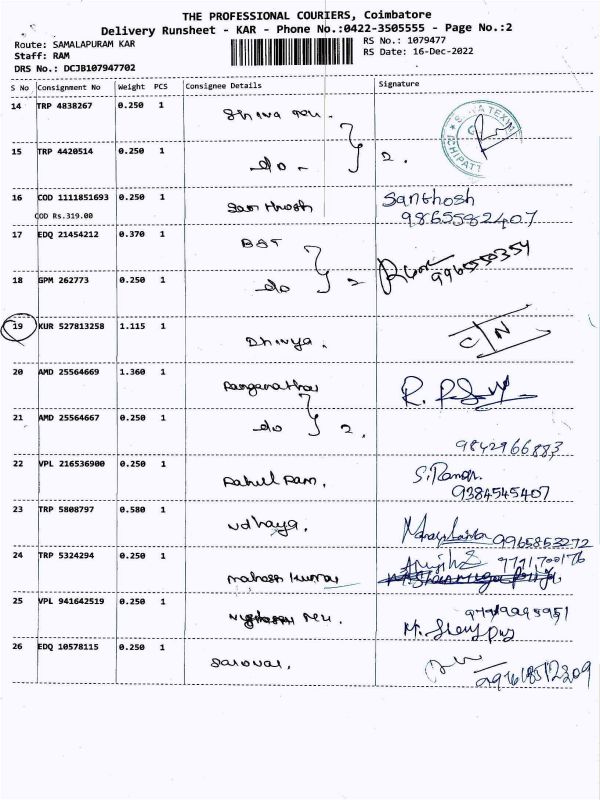 THE PROFESSIONAL COURIERS, Coimbatore
Delivery Runsheet - KAR - Phone No.:0422-3505555 - Page No.:2
Route: SAMALAPURAM KAR
RS No.: 1079477
Staff: RAM
RS Date: 16-Dec-2022
DRS No.: DCJB107947702
S No Consignment No Weight PCS Consignee Details Signature
14 TRP 4838267 0.250 1
15 TRP 4420514 0.250 1 do - 2.
16 COD 1111851693 0.250 1 Santhosh Santhosh
COD Rs.319.00 9865582407
17 EDQ 21454212 0.370 1
18 GPM 262773 0.250 1 do 2
19 KUR 527813258 1.115 1 Dhivya. C/N
20 AMD 25564669 1.360 1
21 AMD 25564667 0.250 1 do 2.
9842966883
22 VPL 216536900 0.250 1 Rahul Ram. S. Raman.
9384545407
23 TRP 5808797 0.580 1 Udhaya. 9965853272
24 TRP 5324294 0.250 1 Mahesh Kumar 9791700176
25 VPL 941642519 0.250 1
26 EDQ 10578115 0.250 1 Saroval.